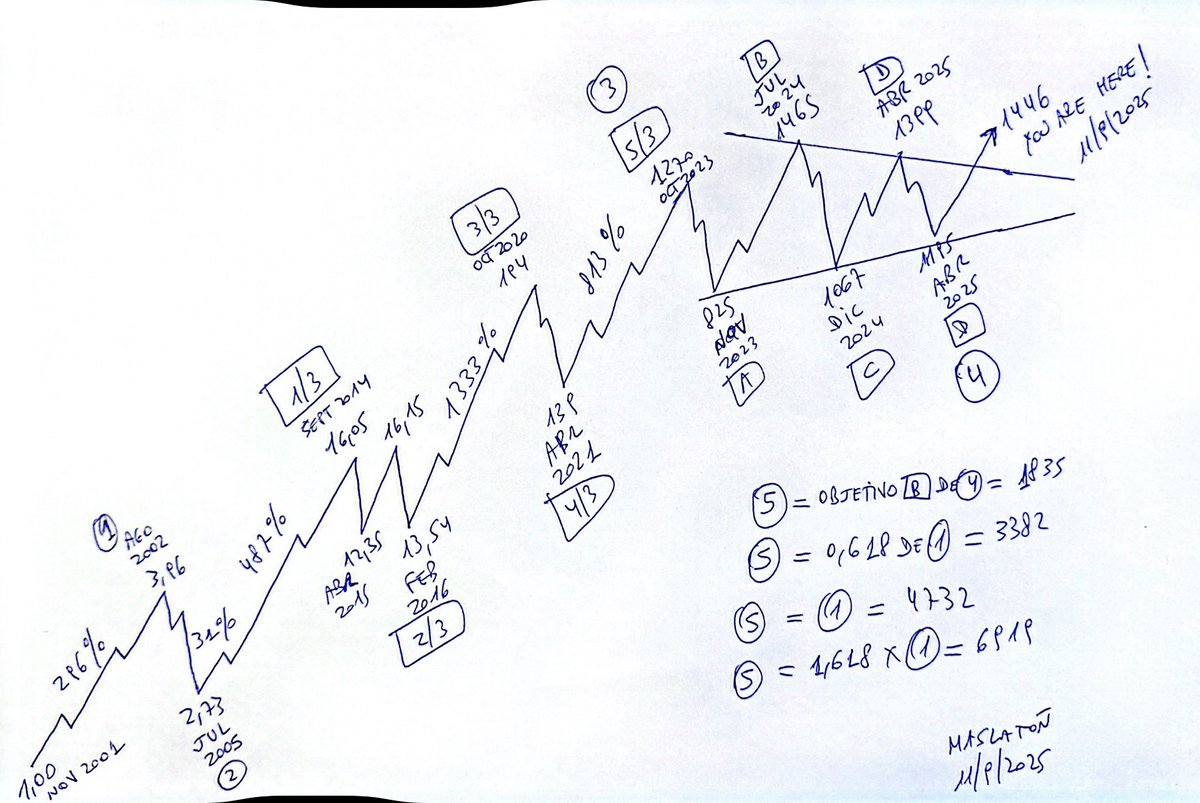 1,00
NOV 2001
296%
1
AGO
2002
3,96
31%
2,73
JUL
2005
2
487%
1/3
SEPT 2014
16,05
12,35
ABR
2015
16,15
13,54
FEB
2016
2/3
1333%
3/3
OCT 2020
194
139
ABR
2021
4/3
813%
3
5/3
1270
OCT 2023
825
NOV
2023
A
B
JUL
2024
1465
1067
DIC
2024
C
D
ABR 2025
1399
1195
ABR
2025
4
1446
YOU ARE HERE!
11/9/2025
5 = OBJETIVO B DE 4 = 1835
5 = 0,618 DE 1 = 3382
5 = 1 = 4732
5 = 1,618 X 1 = 6919
MASLATOÑ
11/9/2025